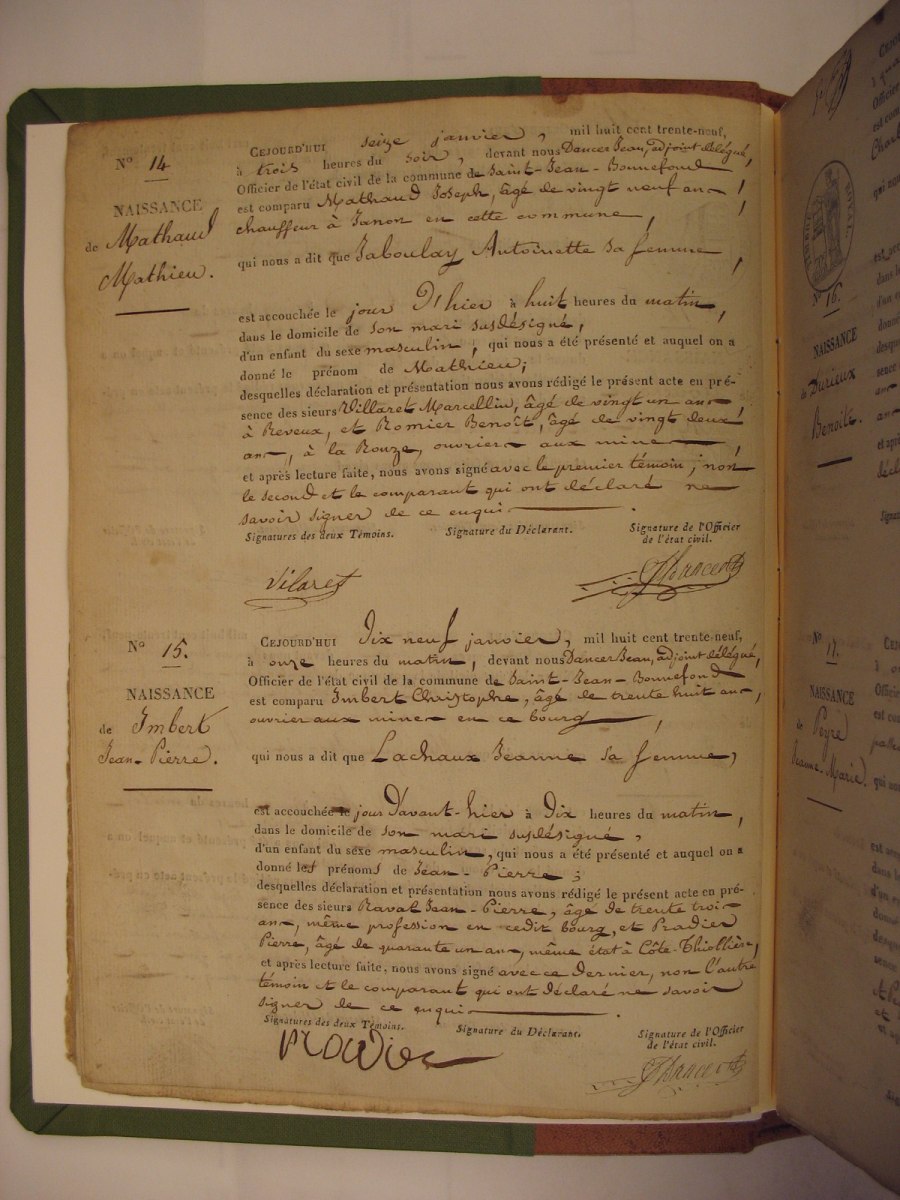 N° 14
NAISSANCE
de Mathaud
Mathieu.
CEJOURD'HUI seize janvier, mil huit cent trente-neuf,
à trois heures du soir, devant nous Dancer Jean, adjoint délégué,
Officier de l'état civil de la commune de Saint-Jean-Bonnefond
est comparu Mathaud Joseph, âgé de vingt neuf ans,
chauffeur à Janon en cette commune,
qui nous a dit que Jaboulay Antoinette sa femme,
est accouchée le jour D'hier à huit heures du matin,
dans le domicile de son mari susdésigné,
d'un enfant du sexe masculin, qui nous a été présenté et auquel on a
donné le prénom de Mathieu;
desquelles déclaration et présentation nous avons rédigé le présent acte en pré-
sence des sieurs Villaret Marcellin, âgé de vingt un ans
à Reveux, et Romier Benoît, âgé de vingt deux
ans, à la Ronze, ouvriers aux mines,
et après lecture faite, nous avons signé avec le premier témoin; non
le second et le comparant qui ont déclaré ne
savoir signer de ce enquis.
Signatures des deux Témoins. Signature du Déclarant. Signature de l'Officier
de l'état civil.
Vilaret
N° 15.
NAISSANCE
de Imbert
Jean-Pierre.
CEJOURD'HUI Dix neuf janvier, mil huit cent trente-neuf,
à onze heures du matin, devant nous Dancer Jean, adjoint délégué,
Officier de l'état civil de la commune de Saint-Jean-Bonnefond
est comparu Imbert Christophe, âgé de trente huit ans,
ouvrier aux mines en ce bourg,
qui nous a dit que Lachaux Jeanne sa femme,
est accouchée le jour D'avant-hier à Dix heures du matin,
dans le domicile de son mari susdésigné,
d'un enfant du sexe masculin, qui nous a été présenté et auquel on a
donné les prénoms de Jean-Pierre;
desquelles déclaration et présentation nous avons rédigé le présent acte en pré-
sence des sieurs Raval Jean-Pierre, âgé de trente trois
ans, même profession en cedit bourg, et Pradier
Pierre, âgé de quarante un ans, même état à Côte-Thiollière,
et après lecture faite, nous avons signé avec ce dernier, non l'autre
témoin et le comparant qui ont déclaré ne savoir
signer de ce enquis.
Signatures des deux Témoins. Signature du Déclarant. Signature de l'Officier
de l'état civil.
pradier
N° 16.
NAISSANCE
de Durieux
Benoîte.
N° 17.
NAISSANCE
de Peyre
Jeanne-Marie.